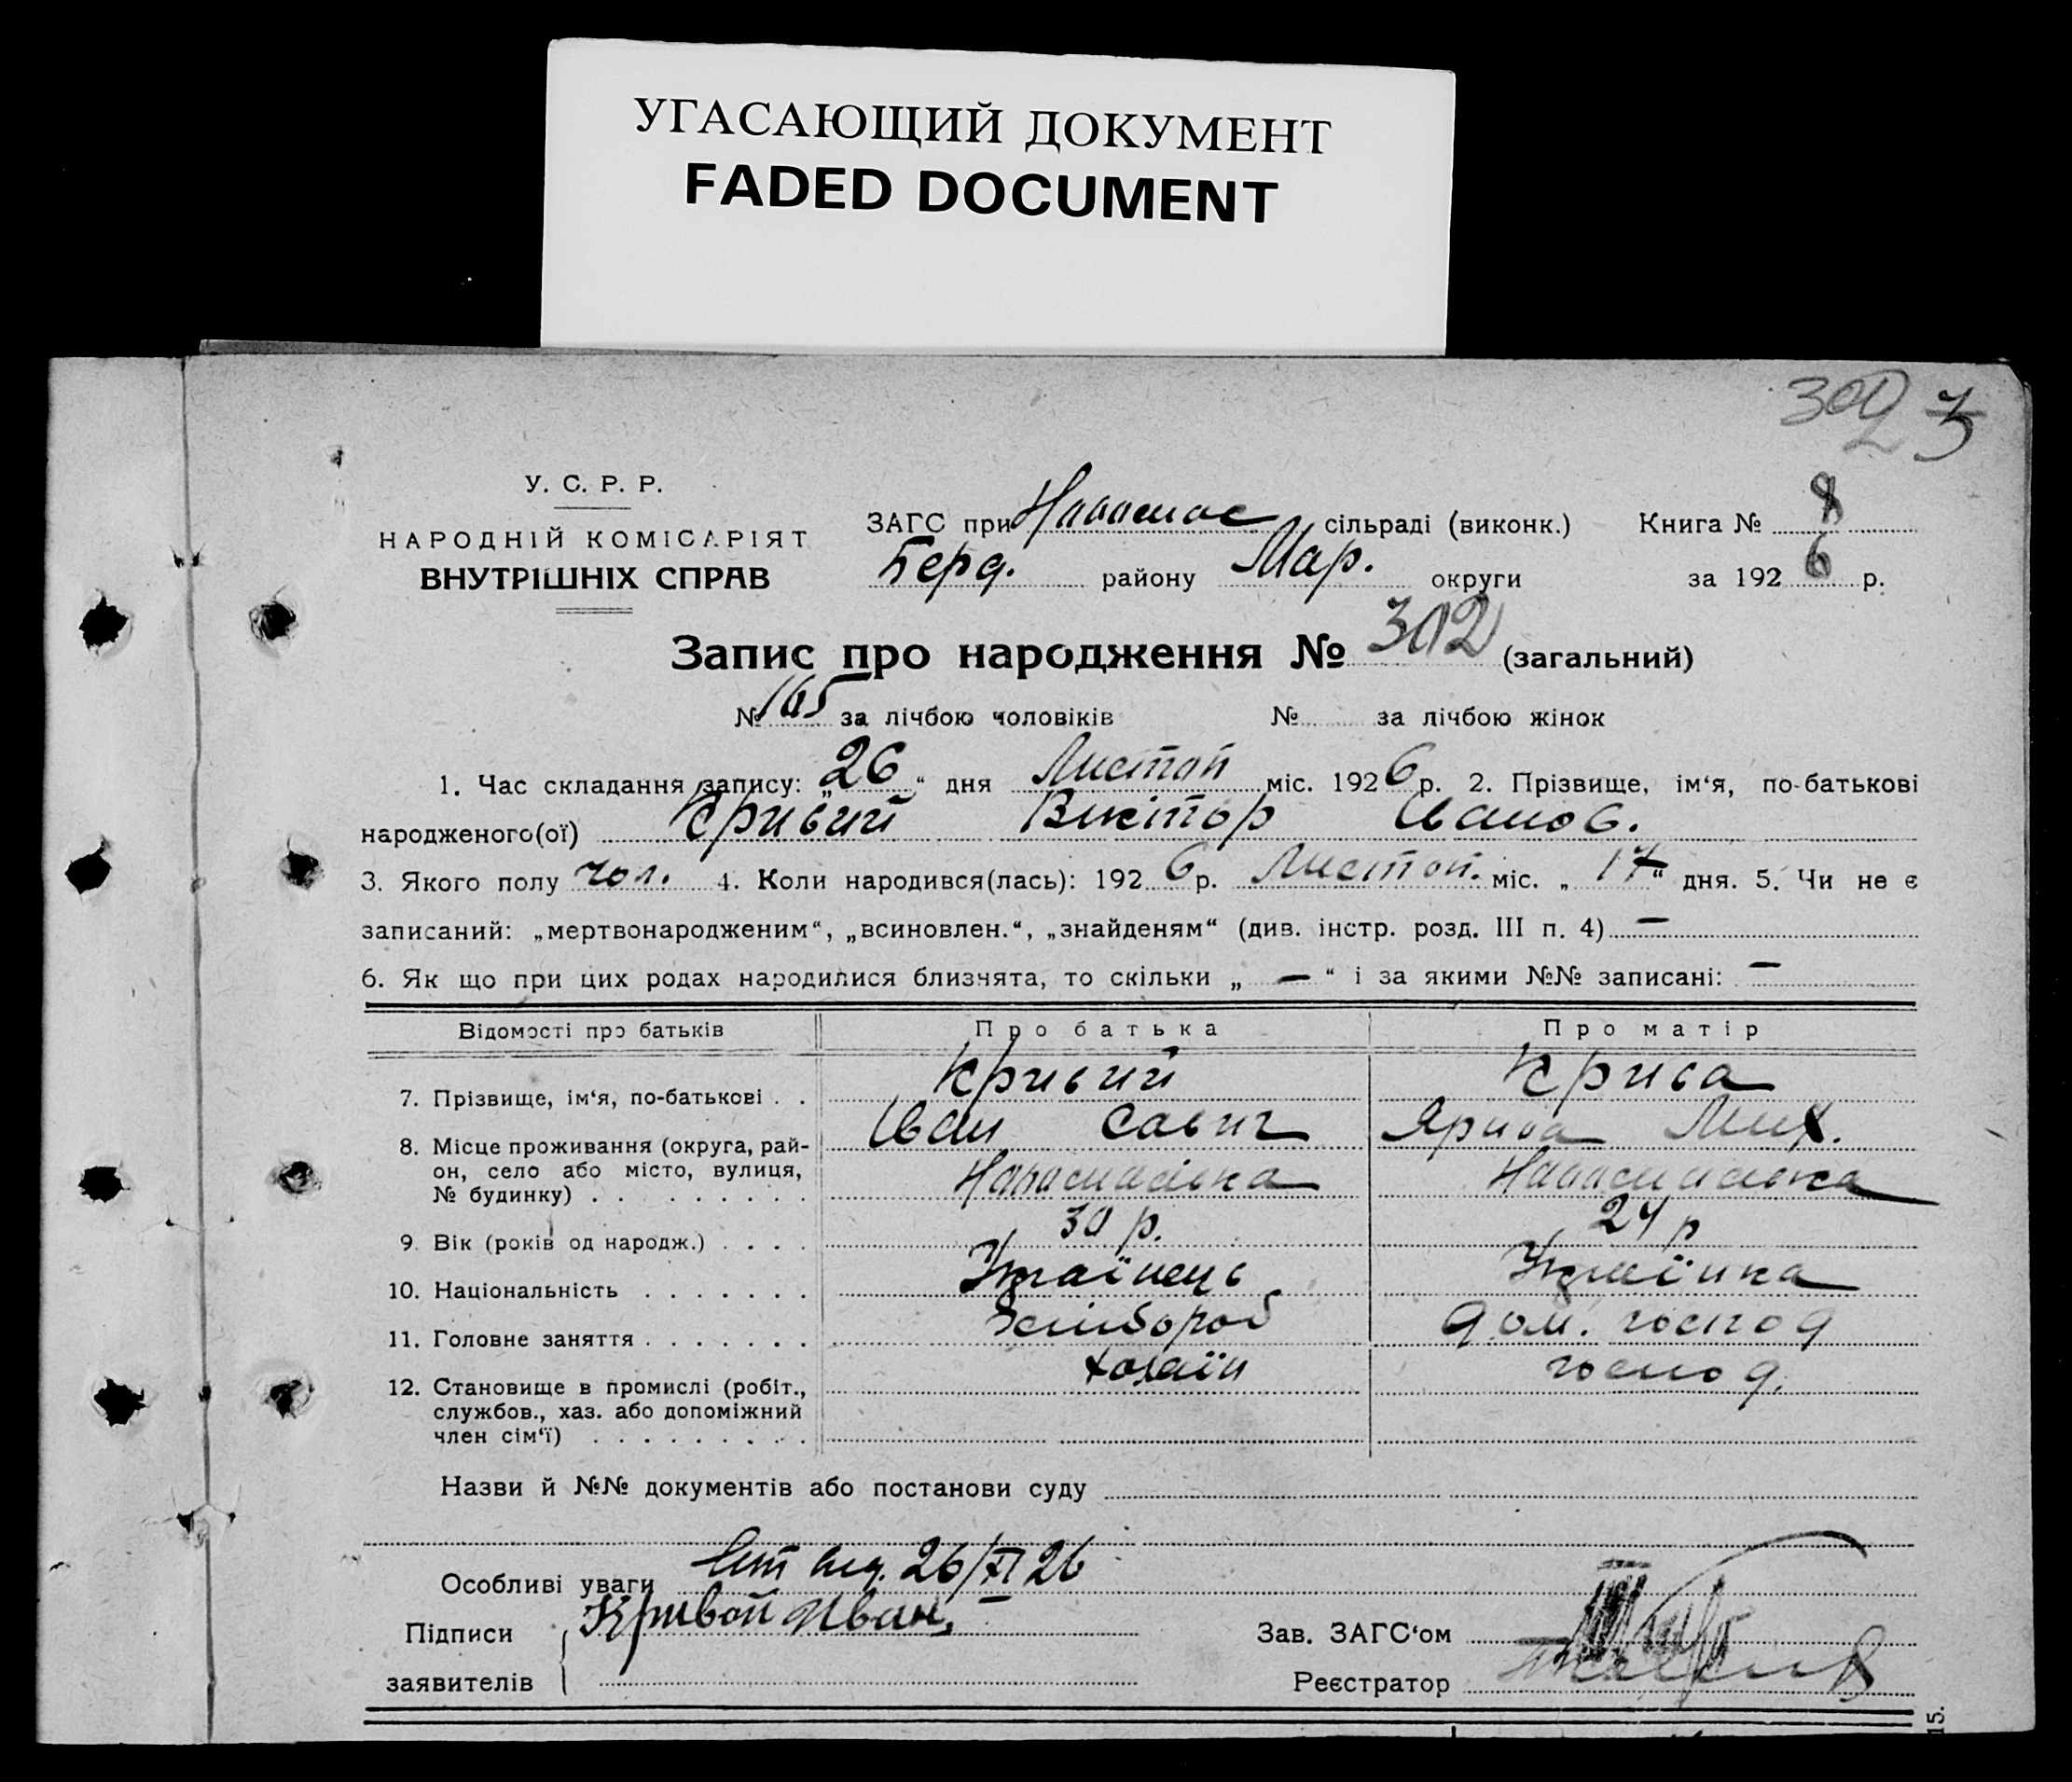 УГАСАЮЩИЙ ДОКУМЕНТ
FADED DOCUMENT
302
У. С. Р. Р.
НАРОДНІЙ КОМІСАРІЯТ
ВНУТРІШНІХ СПРАВ
ЗАГС при сільраді (виконк.) Книга № 8
Берд. району Мар. округи за 1926 р.
Запис про народження № 302 (загальний)
№ 165 за лічбою чоловіків № за лічбою жінок
1. Час складання запису: „26“ дня Листоп міс. 1926 р. 2. Прізвище, ім‘я, по-батькові
народженого(ої) Кривий Віктор Іванов.
3. Якого полу чол. 4. Коли народився(лась): 1926 р. Листоп. міс. „17“ дня. 5. Чи не є
записаний: „мертвонародженим“, „всиновлен.“, „знайденям“ (див. інстр. розд. III п. 4) —
6. Як що при цих родах народилися близнята, то скільки „ — “ і за якими №№ записані: —
Відомості про батьків Про батька Про матір
7. Прізвище, ім‘я, по-батькові . . Кривий Крива
Іван Савич Мих.
8. Місце проживання (округа, рай-
он, село або місто, вулиця,
№ будинку) . . . . . . . . .
9. Вік (років од народж.) . . . . 30 р. 24 р
10. Національність . . . . . . . Українець Українка
11. Головне заняття . . . . . . . Хлібороб дом. господ
12. Становище в промислі (робіт., хазаїн господ.
службов., хаз. або допоміжний
член сім‘ї) . . . . . . . . .
Назви й №№ документів або постанови суду
Особливі уваги 26/XI 26
Підписи заявителів Кривой Иван
Зав. ЗАГС‘ом
Реєстратор
15.